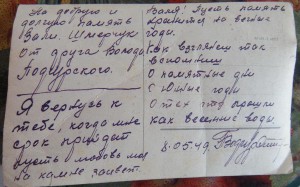 На добрую и
долгую память
Вали. Шмерчук
От друга Володи
Подгурского.
Я вернусь к
тебе, когда мне
срок придёт
пусть любовь моя
на камне зацвет.
Валя, пусть память
хранится на вечные
годи.
Как взглянеш так
вспомниш
О памятные дни
С Юные годи
О тех что прошли
как весенние води.
8.05.49